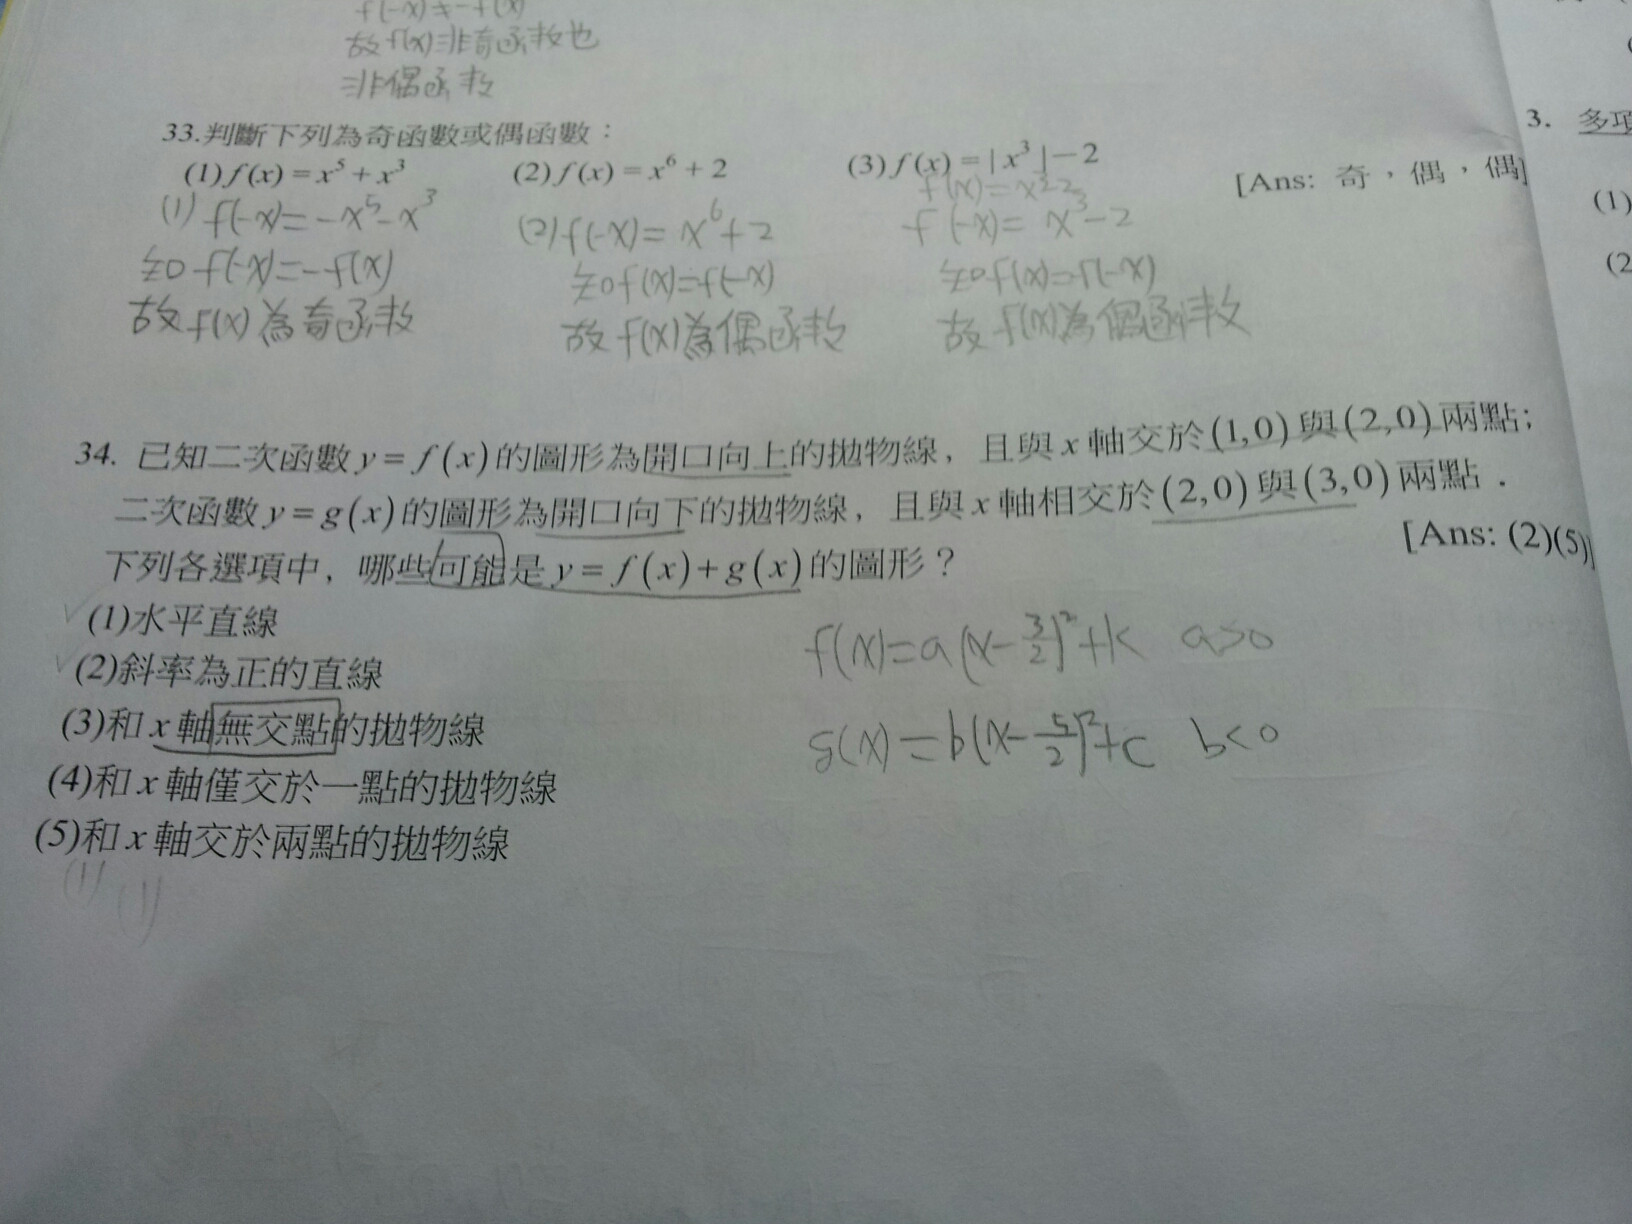 f(-x)≠-f(x)
故f(x)非奇函数也
非偶函数
33.判斷下列為奇函數或偶函數：
(1) f(x) = x⁵ + x³ (2) f(x) = x⁶ + 2 (3) f(x) = | x³ | − 2 [Ans: 奇，偶，偶]
(1) f(-x)= -x⁵-x³
知 f(-x)=-f(x)
故f(x)為奇函数
(2) f(-x)= x⁶+2
知f(x)=f(-x)
故f(x)為偶函数
f(-x)= x³-2
知f(x)=f(-x)
故f(x)為偶函数
34. 已知二次函數 y = f (x) 的圖形為開口向上的拋物線，且與 x 軸交於 (1,0) 與 (2,0) 兩點；
二次函數 y = g(x) 的圖形為開口向下的拋物線，且與 x 軸相交於 (2,0) 與 (3,0) 兩點．
下列各選項中，哪些可能是 y = f (x) + g (x) 的圖形？ [Ans: (2)(5)]
(1)水平直線
(2)斜率為正的直線
(3)和 x 軸無交點的拋物線
(4)和 x 軸僅交於一點的拋物線
(5)和 x 軸交於兩點的拋物線
f(x)=a(x-3/2)²+k a>0
g(x)=b(x-5/2)²+c b<0
(1)
3. 多項
(1)
(2